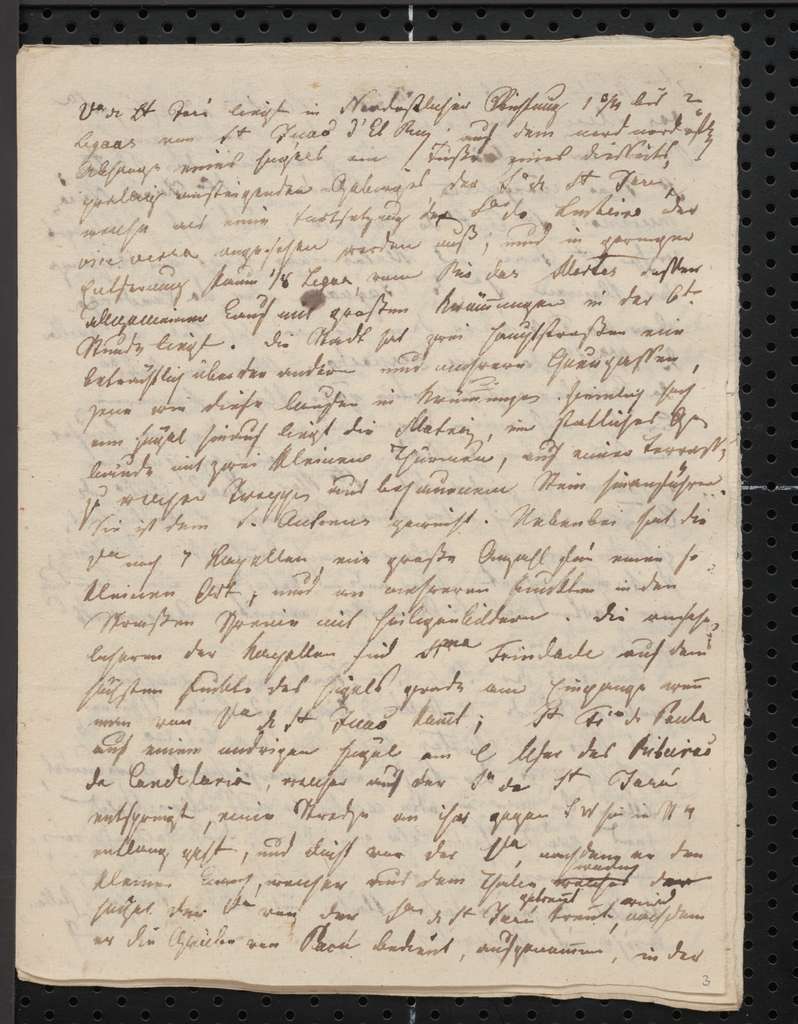 Va de St José liegt in Nordöstlicher Richtung 1 3/4 bis 2
Legoas von St Joao d'El Rey auf dem nord nordöstl
Abhange eines Hügels am Fuße eines diesseits,
ansteigenden Gebirges der Sa de St José,
welche als eine Fortsetzung der Sa do Lenheiro oder
vice versa angesehen werden muß, und in geringer
Entfernung kaum 1/8 Legoa, vom Rio das Mortes dessen
allgemeiner Lauf mit großen Krümmungen in der 6t
Stunde liegt. Die Stadt hat zwei Hauptstraßen eine
beträchtlich über der andern und mehrere Quergassen,
jene wie diese laufen in Krümmungen. Ziemlich hoch
am Hügel hinauf liegt die Matriz, ein stattliches Ge
bäude mit zwei kleinen Thürmen, auf einer Terrasse
zu welcher Treppen aus behauenem Stein hinanführen.
Sie ist dem S. Antonio geweiht. Nebenbei hat die
Va noch 7 Kapellen, eine große Anzahl für einen so
kleinen Ort, und an mehreren Punkten in den
Straßen Schreine mit Heiligenbildern. Die ansehn
licheren der Kapellen sind Stma Trindade auf dem
höchsten Punkte des Hügels gerade am Eingange wenn
man von Va de St Joao kommt; St Fro de Paula
auf einem niedrigen Hügel am l Ufer des Ribeirao
da Candelaria, welcher auf der Sa de St José
entspringt, eine Strecke an ihr gegen SW hin in
entlang geht, und dicht vor der Va, nachdem er den
kleinen Bach, welcher aus dem Thale welches der
Hügel der Va von der Sa de St José trennt, nachdem
er die Wäsche von bedient, aufgenommen, in der
3